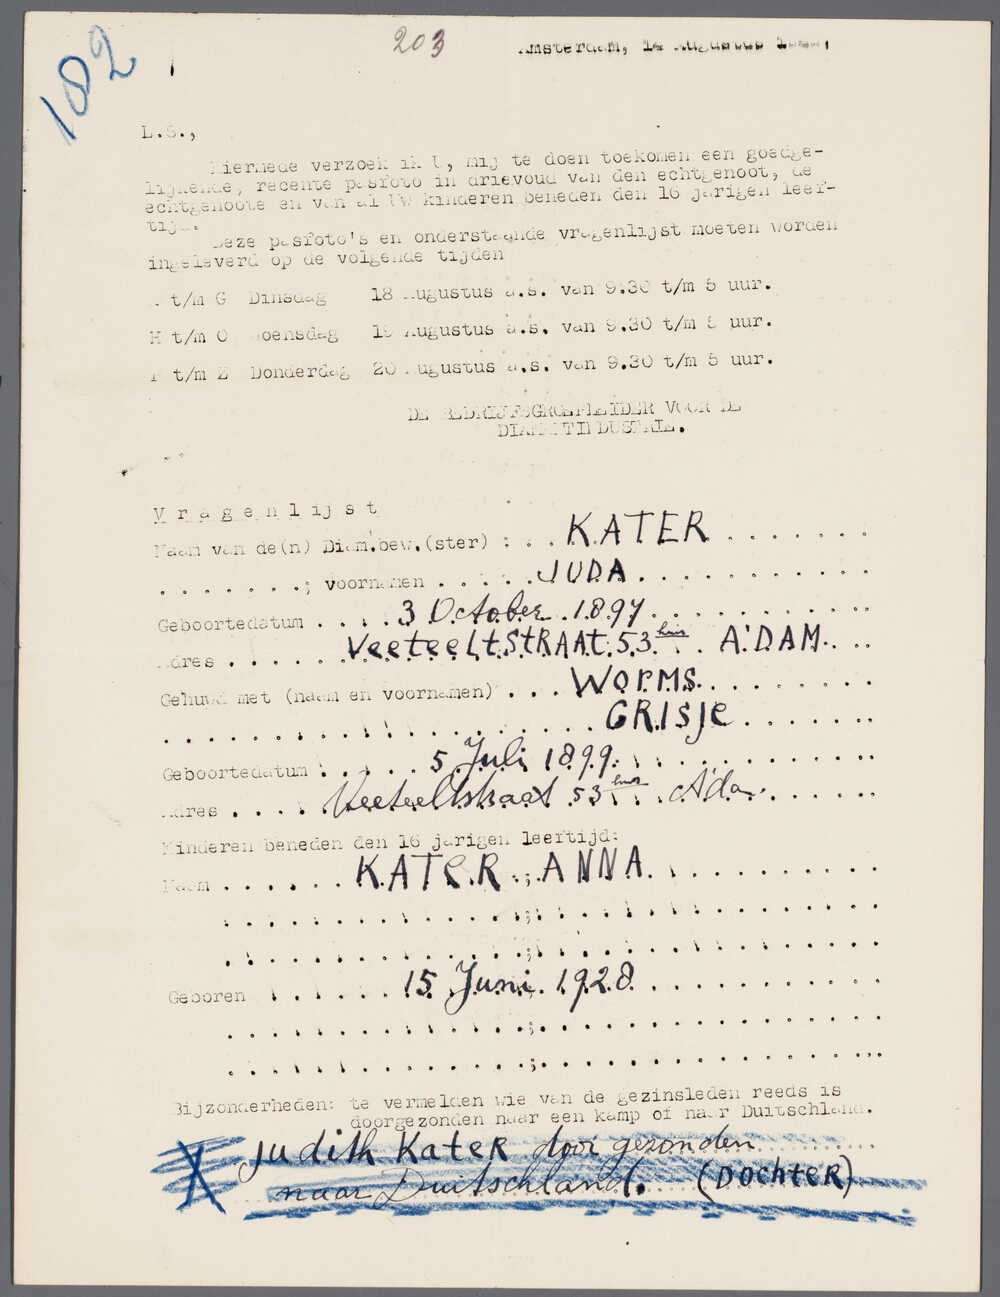 182
203
Amsterdam, 14 Augustus
L.S.,
Hiermede verzoek ik U, mij te doen toekomen een goedge-
lijkende, recente pasfoto in drievoud van den echtgenoot, de
echtgenoote en van al Uw kinderen beneden den 16 jarigen leef-
tijd.
Deze pasfoto's en onderstaande vragenlijst moeten worden
ingeleverd op de volgende tijden
A t/m G Dinsdag 18 Augustus a.s. van 9.30 t/m 5 uur.
H t/m O Woensdag 19 Augustus a.s. van 9.30 t/m 5 uur.
P t/m Z Donderdag 20 Augustus a.s. van 9.30 t/m 5 uur.
DE BEDRIJFSGROEPLEIDER VOOR DE
DIAMANTINDUSTRIE.
Vragenlijst
Naam van de(n) Diam.bew.(ster) : . . KATER . . . . . . .
. . . . . . . ; voornamen . . . . . JUDA . . . . . . . . . . .
Geboortedatum . . . . 3 October 1897 . . . . . . . . . .
Adres . . . . . . Veeteeltstraat 53 huis . . A'DAM. . . .
Gehuwd met (naam en voornamen) . . . WORMS . . . . . . . .
. . . . . . . . . . . . . . . . . . . GRISJE . . . . . . .
Geboortedatum . . . . . 5 Juli 1899. . . . . . . . . . . .
Adres . . . . Veeteeltstraat 53 huis . . A'dam . . . . . .
Kinderen beneden den 16 jarigen leeftijd:
Naam . . . . . . KATER . ; ANNA . . . . . . . . . . .
. . . . . . . . . . . . . . . ; . . . . . . . . . . . . . . . .
. . . . . . . . . . . . . . . ; . . . . . . . . . . . . . . . .
Geboren . . . . . . 15 Juni 1928 . . . . . . . . . . . .
. . . . . . . . . . . . . . . ; . . . . . . . . . . . . . . . .
. . . . . . . . . . . . . . . ; . . . . . . . . . . . . . . . .
Bijzonderheden: te vermelden wie van de gezinsleden reeds is
doorgezonden naar een kamp of naar Duitschland.
X Judith Kater door gezonden
naar Duitschland. (DOCHTER)